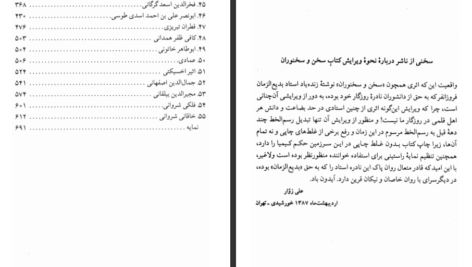 ۴۵. فخرالدین اسعد گرگانی ۳۶۸
۴۶. ابونصر علی بن احمد اسدی طوسی ۴۳۰
۴۷. قطران تبریزی ۴۷۶
۴۸. کافی ظفر همدانی ۵۰۳
۴۹. ابوطاهر خاتونی ۵۰۴
۵۰. عمادی ۵۰۶
۵۱. اثیر اخسیکتی ۵۲۴
۵۲. جمال‌الدین اصفهانی ۵۴۱
۵۳. مجیرالدین بیلقانی ۵۷۴
۵۴. فلکی شروانی ۶۰۱
۵۵. خاقانی شروانی ۶۱۲
نمایه ۶۹۱
سخنی از ناشر دربارهٔ نحوهٔ ویرایش کتاب سخن و سخنوران
واقعیت این که اثری همچون «سخن و سخنوران» نوشتهٔ زنده‌یاد استاد بدیع‌الزمان
فروزانفر که به حق از دانشوران نادرهٔ روزگار خود بوده، به دور از ویرایشی آن‌چنانی
است، چرا که ویرایش این‌گونه اثری از چنین استادی در حد بضاعت و دانش هر
اهل قلمی در روزگار ما نیست! و منظور از ویرایش آن تنها تبدیل رسم‌الخط چند
دههٔ قبل به رسم‌الخط مرسوم در این زمان و رفع برخی از غلط‌های چاپی و نه تمام
آن‌ها، زیرا چاپ کتاب بدون غلط چاپی در این سرزمین حکم کیمیا را دارد،
همچنین تنظیم نمایهٔ راستینی برای استفاده خواننده منظورنظر بوده است ولاغیر،
با این امید که قادر متعال روان پاک این نادره استاد را که به حق «بدیع‌الزمان» بوده،
در دیگرسرای با روان خاصان و نیکان قرین دارد. آیدون باد.
علی زوّار
اردیبهشت‌ماه ۱۳۸۷ خورشیدی ـ تهران